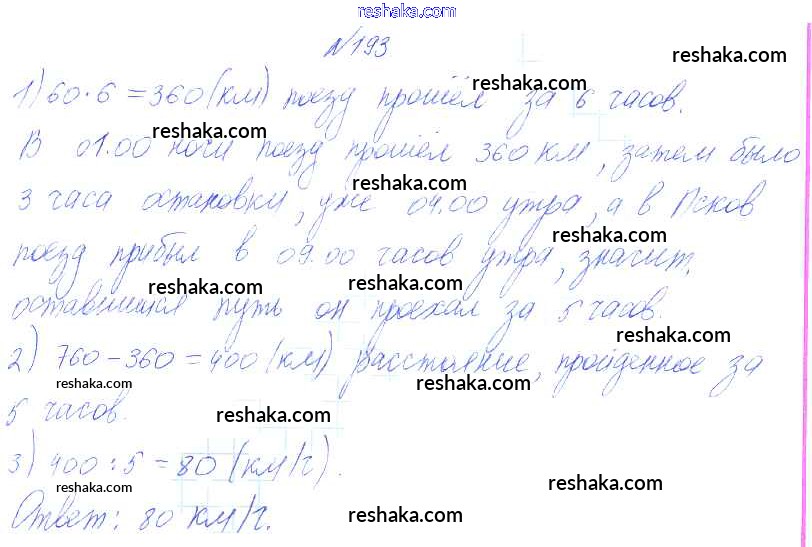 reshaka.com
№193
reshaka.com
1) 60·6=360(км) поезд прошёл за 6 часов.
reshaka.com
reshaka.com
В 01.00 ночи поезд прошёл 360 км, затем было
reshaka.com
3 часа остановки, уже 04.00 утра, а в Псков
reshaka.com
поезд прибыл в 09.00 часов утра, значит,
reshaka.com
оставшийся путь он проехал за 5 часов.
reshaka.com
2) 760-360=400(км) расстояние, пройденное за
reshaka.com
reshaka.com
5 часов.
reshaka.com
3) 400:5=80(км/ч).
reshaka.com
reshaka.com
Ответ: 80 км/ч.
reshaka.com